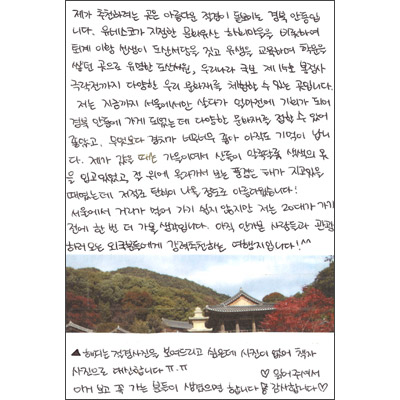 제가 추천하려는 곳은 아름다운 적경이 돋보이는 경북 안동입
니다. 유네스코가 지정한 문화유산 하회마을을 비롯하여
퇴계 이황 선생이 도산서당을 짓고 유생을 교육하며 학문을
쌓던 곳으로 유명한 도산서원, 우리나라 국보 제 15호 봉정사
극락전까지 다양한 우리 문화재를 체험할 수 있는 곳입니다.
저는 지금까지 서울에서만 살다가 얼마전에 기회가 되어
경북 안동에 가게 되었는데 다양한 문화재를 접할 수 있어
좋았고, 무엇보다 경치가 너무너무 좋아 아직도 기억이 납니
다. 제가 갔을 때는 가을이여서 산들이 알록달록 색색의 옷
을 입고있었고, 절 위에 올라가서 보는 풍경은 해가 지고있을
때였는데 저절로 탄성이 나올 정도로 아름다웠습니다!
서울에서 거리가 멀어 가기 쉽지 않지만 저는 20대가 가기
전에 한 번 더 가올 생각입니다. 아직 안가본 사람들과 관광
하러 오는 외국분들에게 강력추천하는 여행지입니다!^^
▲ 해지는 적경사진을 보여드리고 싶은데 사진이 없어 책자
사진으로 대신합니다 ㅠ.ㅠ ♡ 읽어주셔서
이거 보고 꼭 가는 분들이 생겼으면 합니다 감사합니다♡